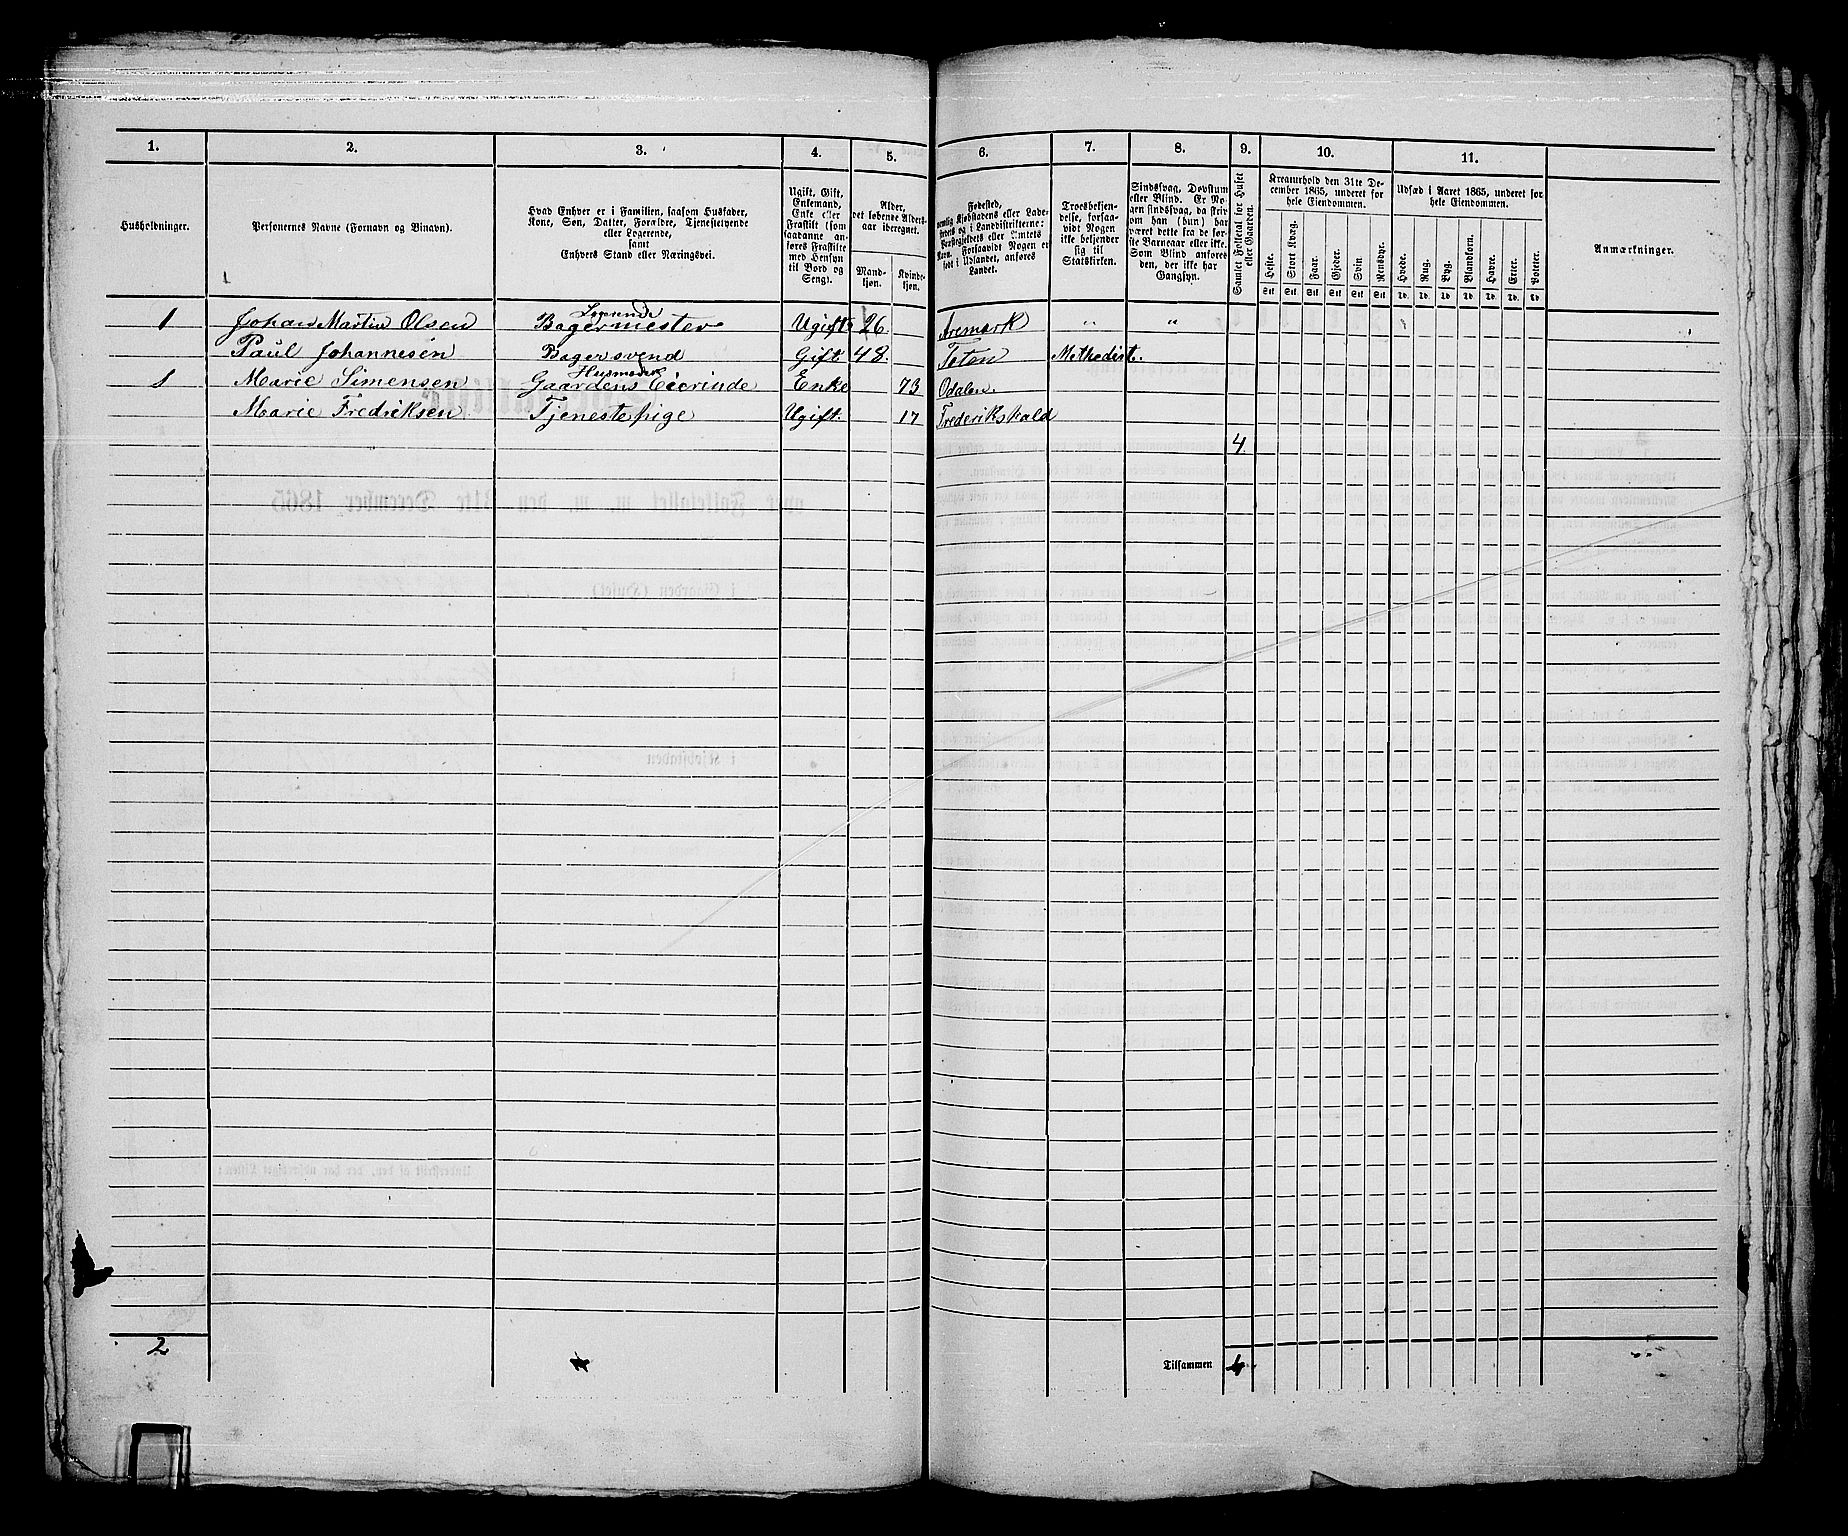 1. 2. 3. 4. 5. 6. 7. 8. 9. 10. 11.
Husholdninger.
Personernes Navne (Fornavn og Binavn).
Hvad Enhver er i Familien, saasom Husfader,
Kone, Søn, Datter, Forældre, Tjenestetyende
eller Logerende,
samt
Enhvers Stand eller Næringsvei.
Ugift, Gift,
Enkemand,
Enke eller
Fraskilt (som
saadanne an-
føres Fraskilte
med Hensyn
til Bord og
Seng).
Alder,
det løbende Alders-
aar iberegnet.
Mand-
kjøn.
Kvinde-
kjøn.
Fødested,
nemlig Kjøbstadens eller Lade-
stedets og i Landdistrikterne:
Præstegjeldets eller Amtets
Navn. Forsaavidt Nogen er
født i Udlandet, anføres
Landet.
Troesbekjen-
delse, forsaa-
vidt Nogen
ikke bekjender
sig til
Statskirken.
Sindssvag, Døvstum
eller Blind. Er No-
gen sindssvag, da skriv
om han (hun) har
været dette fra de før-
ste Barneaar eller ikke.
Som Blind anføres
den, der ikke har
Gangsyn.
Samlet Folketal for Huset
eller Gaarden.
Kreaturhold den 31te De-
cember 1865, underet for
hele Eiendommen.
Heste. Stort Kvæg. Faar. Gjeder. Svin. Rensdyr.
Stk. Stk. Stk. Stk. Stk. Stk.
Udsæd i Aaret 1865, underet for
hele Eiendommen.
Hvede. Rug. Byg. Blandkorn. Havre. Erter. Poteter.
Td. Td. Td. Td. Td. Td. Td.
Anmærkninger.
1 Johan Martin Olsen Logerende Bagermester Ugift 26 Aremark " "
Paul Johannesen Bagersvend Gift 48. Toten Methodist.
1 Marie Simensen Husmoder Gaardens Eierinde Enke 73 Odalen
Marie Fredriksen Tjenestepige Ugift. 17 Frederikshald
4.
2
Tilsammen 4